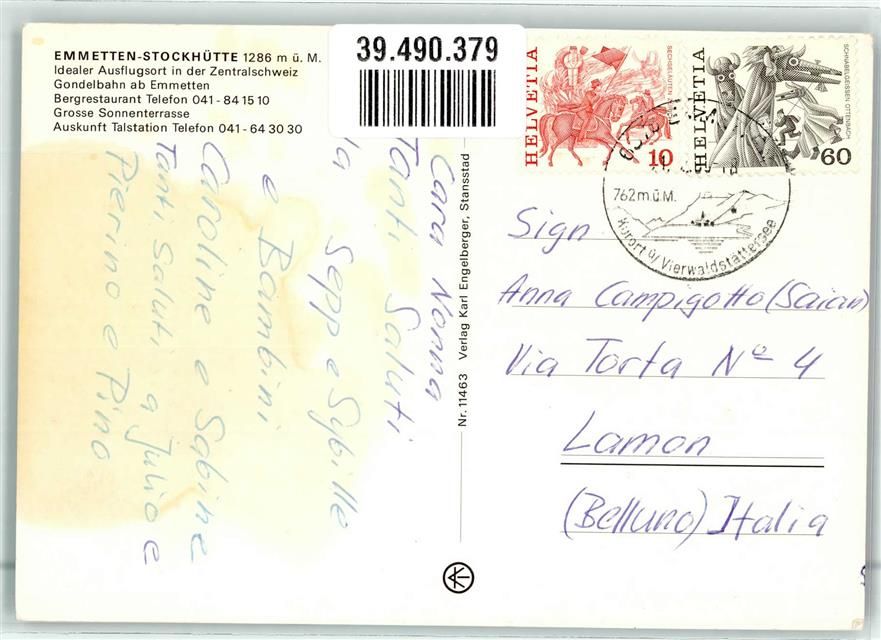 EMMETTEN-STOCKHÜTTE 1286 m ü. M.
Idealer Ausflugsort in der Zentralschweiz
Gondelbahn ab Emmetten
Bergrestaurant Telefon 041 - 84 15 10
Grosse Sonnenterrasse
Auskunft Talstation Telefon 041 - 64 30 30
39.490.379
Cara Nonna
Tanti Saluti
da Sepp e Sybille
e Bambini
Caroline e Sabine
Tanti Saluti a Julio e
Pierino e Pino
Nr. 11463 Verlag Karl Engelberger, Stansstad
HELVETIA
SECHSELÄUTEN
10
HELVETIA
SCHNABELGEISSEN OTTENBACH
60
762 m.ü.M.
Kurort ü/Vierwaldstättersee
Sign
Anna Campigotto (Saian)
Via Torta Nº 4
Lamon
(Belluno) Italia